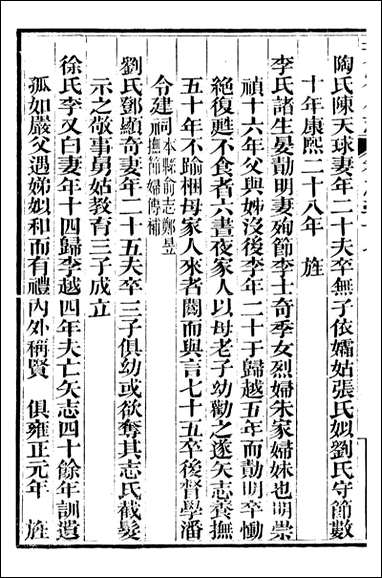 陶氏陳天球妻年二十夫卒無子依孀姑張氏姒劉氏守節數
十年康熙二十八年 旌
李氏諸生晏勛明妻殉節李士奇季女烈婦朱家婦妹也明崇
禎十六年父與姆沒後李年二十于歸越五年而勛明卒慟
絶復甦不食者六晝夜家人以母老子幼勸之遂矢志養撫
五十年不踰梱母家人來者閾而與言七十五卒後督學潘
令建祠本縣俞志鄭昱撫節婦傳補
劉氏鄧顯奇妻年二十五夫卒三子俱幼或欲奪其志氏截髮
示之敬事舅姑教育三子成立
徐氏李又白妻年十四歸李越四年夫亡矢志四十餘年訓遺
孤如嚴父遇娣姒和而有禮內外稱賢 俱雍正元年 旌